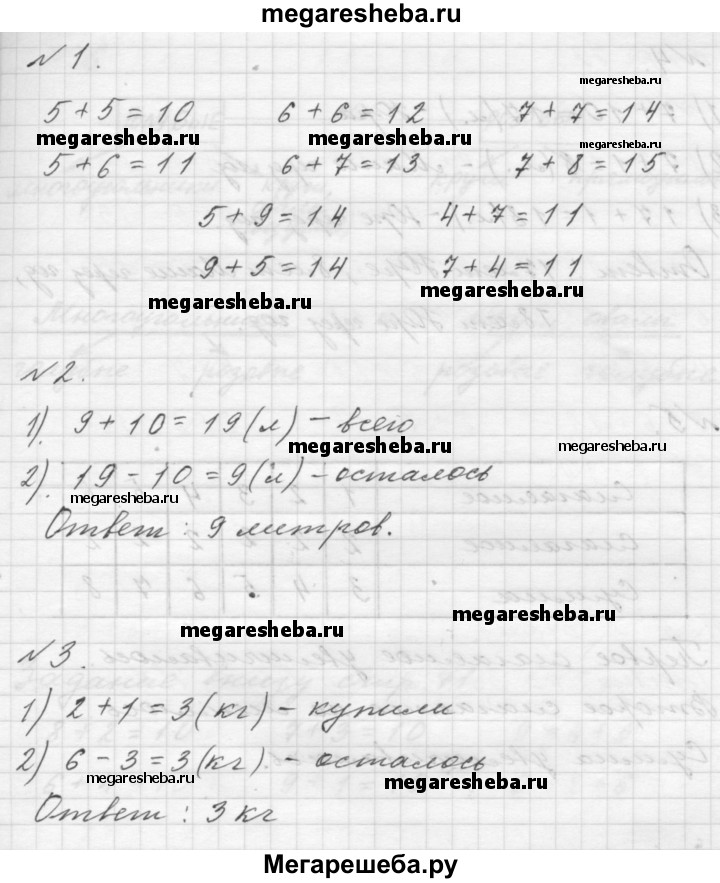 megaresheba.ru
№ 1.
megaresheba.ru
5 + 5 = 10 6 + 6 = 12 7 + 7 = 14
megaresheba.ru megaresheba.ru megaresheba.ru
5 + 6 = 11 6 + 7 = 13 7 + 8 = 15
5 + 9 = 14 4 + 7 = 11
9 + 5 = 14 7 + 4 = 11
megaresheba.ru megaresheba.ru
№ 2.
1) 9 + 10 = 19 (л) – всего
megaresheba.ru megaresheba.ru
2) 19 – 10 = 9 (л) – осталось
megaresheba.ru
Ответ : 9 литров.
megaresheba.ru megaresheba.ru
№ 3.
1) 2 + 1 = 3 (кг) – купили
2) 6 – 3 = 3 (кг) – осталось
megaresheba.ru megaresheba.ru
Ответ : 3 кг
Мегарешеба.ру